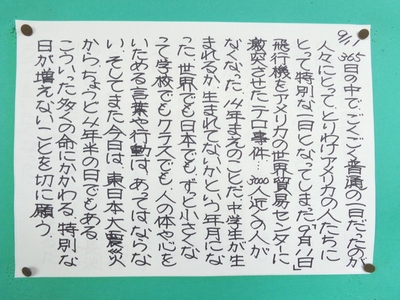 9/11
365日の中で、ごくごく普通の一日だったのが
人々にとって、とりわけアメリカの人たちに
とって特別な一日となってしまった「9月11日」
飛行機をアメリカの世界貿易センターに
激突させたテロ事件…3000人近くの人が
なくなった。14年まえのことだ。中学生が生
まれるか、生まれてないかという年月にな
った。世界でも日本でも、ずっと小さくな
って学校でもクラスでも、人の体や心を
いためる言葉や行動は、あってはならな
い。そしてまた今日は、東日本大震災
から、ちょうど4年半の日でもある。
こういった多くの命にかかわる、特別な
日が増えないことを切に願う。